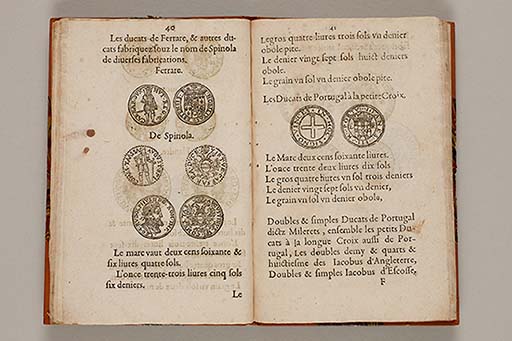 40
Les ducats de Ferrare, & autres du-
cats fabriquez souz le nom de Spinola
de diuerses fabrications.
Ferrare.
De Spinola.
Le marc vaut deux cens soixante &
six liures quatre sols.
L'once trente-trois liures cinq sols
six deniers.
Le
41
Le gros quatre liures trois sols vn denier
obole pite.
Le denier vingt sept sols huict deniers
obole.
Le grain vn sol vn denier obole pite.
Les Ducats de Portugal à la petite Croix.
Le Marc deux cens soixante liures.
L'once trente deux liures dix sols
Le gros quatre liures vn sol trois deniers
Le denier vingt sept sols vn denier,
Le grain vn sol vn denier obole,
Doubles & simples Ducats de Portugal
dictz Milerets, ensemble les petits Du-
cats à la longue Croix aussi de Por-
tugal, Les doubles demy & quarts &
huictiesme des Iacobus d'Angleterre,
Doubles & simples Iacobus d'Escosse,
F